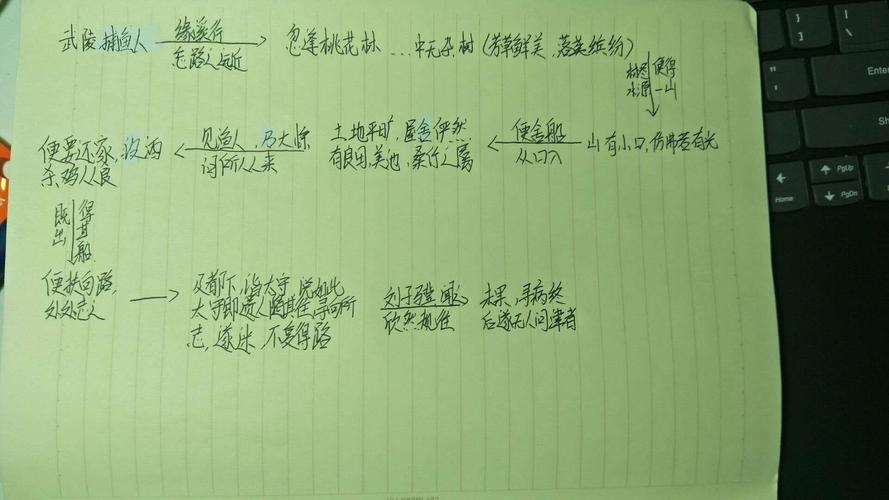 武陵捕鱼人 缘溪行 忘路之远近 忽逢桃花林...中无杂树(芳草鲜美,落英缤纷)
林尽水源 便得一山
山有小口,仿佛若有光
便舍船
从口入
土地平旷,屋舍俨然
有良田,美池,桑竹之属
见渔人,乃大惊
问所从来
便要还家,设酒
杀鸡作食
既出 得其船
便扶向路,
处处志之
及郡下,诣太守,说如此
太守即遣人随其往,寻向所
志,遂迷,不复得路
刘子骥,闻之
欣然规往
未果,寻病终
后遂无人问津者
Enter
Shift
Home
PgUp
PgDn
End